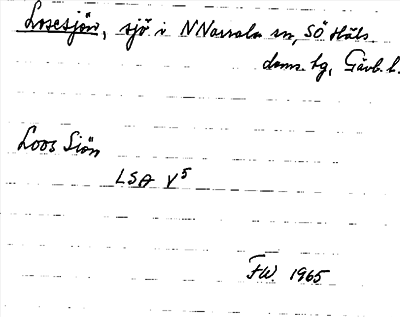 Losesjön, sjö i NNorrala sn, SÖ Häls.
doms. hg, Gävb. l.
Loos Siön
LSA Y⁵
F.W. 1965